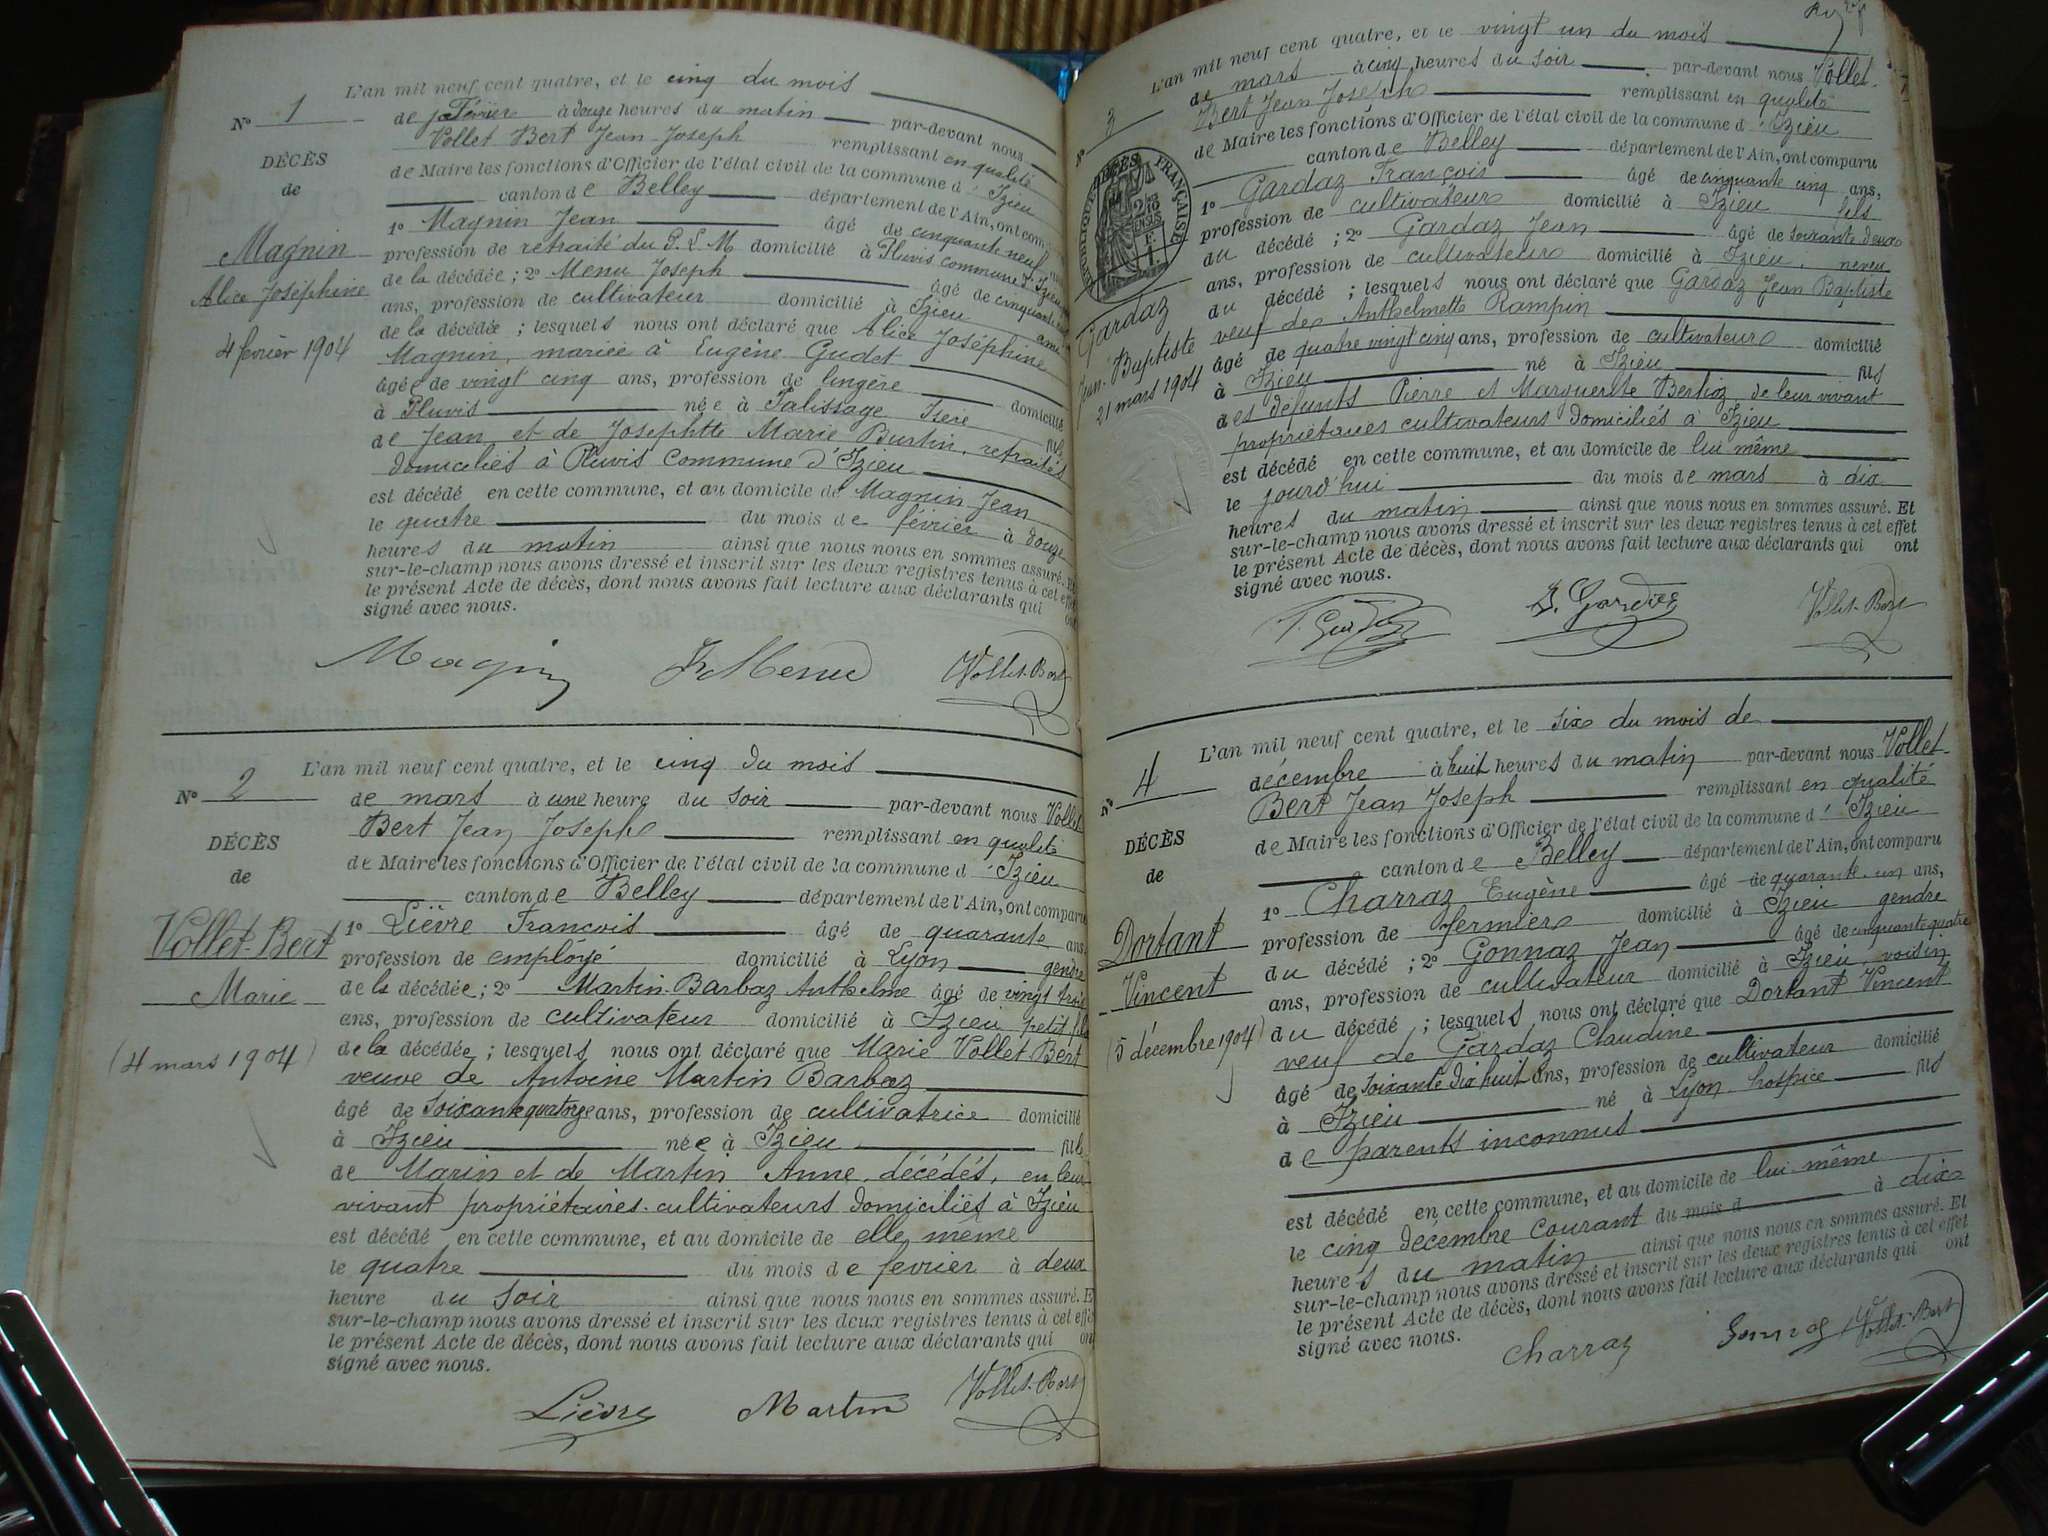 L'an mil neuf cent quatre, et le cinq du mois
N° 1
de Février à douze heures du matin par-devant nous
Vollet Bert Jean Joseph remplissant en qualité
DÉCÈS
de Maire les fonctions d'Officier de l'état civil de la commune d' Izieu
de
canton de Belley département de l'Ain, ont com
1° Magnin Jean âgé de cinquante neuf
Magnin
profession de retraité du P. L. M domicilié à Pluvis commune d'Izieu
Alice Joséphine
de la décédée ; 2° Menu Joseph âgé de cinquante
ans, profession de cultivateur domicilié à Izieu ami
4 février 1904
de la décédée ; lesquels nous ont déclaré que Alice Joséphine
Magnin, mariée à Eugène Gudet
âgée de vingt cinq ans, profession de lingère domicilié
à Pluvis née à Salissage Isère fille
de Jean et de Josephtte Marie Burtin, retraités
domiciliés à Pluvis commune d'Izieu
est décédé en cette commune, et au domicile de Magnin Jean
le quatre du mois de février à douze
heures du matin ainsi que nous nous en sommes assuré. Et
sur-le-champ nous avons dressé et inscrit sur les deux registres tenus à cet effet
le présent Acte de décès, dont nous avons fait lecture aux déclarants qui ont
signé avec nous.
Magnin J Menu Vollet-Bert
L'an mil neuf cent quatre, et le cinq du mois
N° 2
de mars à une heure du soir par-devant nous Vollet
Bert Jean Joseph remplissant en qualité
DÉCÈS
de Maire les fonctions d'Officier de l'état civil de la commune d' Izieu
de
canton de Belley département de l'Ain, ont comparu
Vollet-Bert
1° Lièvre Francois âgé de quarante ans
profession de employé domicilié à Lyon gendre
Marie
de la décédée ; 2° Martin-Barbaz Anthelme âgé de vingt trois
ans, profession de cultivateur domicilié à Izieu petit fils
(4 mars 1904)
de la décédée ; lesquels nous ont déclaré que Marie Vollet Bert
veuve de Antoine Martin Barbaz
âgé de soixante quatorze ans, profession de cultivatrice domicilié
à Izieu née à Izieu fille
de Marin et de Martin Anne, décédés, en leur
vivant propriétaires-cultivateurs domiciliés à Izieu
est décédé en cette commune, et au domicile de elle même
le quatre du mois de fevrier à deux
heure du soir ainsi que nous nous en sommes assuré. Et
sur-le-champ nous avons dressé et inscrit sur les deux registres tenus à cet effet
le présent Acte de décès, dont nous avons fait lecture aux déclarants qui ont
signé avec nous.
Lièvre Martin Vollet-Bert
L'an mil neuf cent quatre, et le vingt un du mois
N° 3
de mars à cinq heures du soir par-devant nous Vollet
Bert Jean Joseph remplissant en qualité
de Maire les fonctions d'Officier de l'état civil de la commune d' Izieu
canton de Belley département de l'Ain, ont comparu
1° Gardaz François âgé de cinquante cinq ans,
profession de cultivateur domicilié à Izieu fils
du décédé ; 2° Gardaz Jean âgé de soixante deux
ans, profession de cultivateur domicilié à Izieu, neveu
du décédé ; lesquels nous ont déclaré que Gardaz Jean Baptiste
Gardaz
veuf de Anthelmette Rampin
Jean-Baptiste
âgé de quatre vingt cinq ans, profession de cultivateur domicilié
21 mars 1904
à Izieu né à Izieu fils
des défunts Pierre et Marguerite Bertioz, de leur vivant
propriétaires cultivateurs domiciliés à Izieu
est décédé en cette commune, et au domicile de lui même
le jourd'hui du mois de mars à dix
heures du matin ainsi que nous nous en sommes assuré. Et
sur-le-champ nous avons dressé et inscrit sur les deux registres tenus à cet effet
le présent Acte de décès, dont nous avons fait lecture aux déclarants qui ont
signé avec nous.
Vollet-Bert
L'an mil neuf cent quatre, et le six du mois de
N° 4
décembre à huit heures du matin par-devant nous Vollet
Bert Jean Joseph remplissant en qualité
DÉCÈS
de Maire les fonctions d'Officier de l'état civil de la commune d' Izieu
de
canton de Belley département de l'Ain, ont comparu
1° Charraz Eugène âgé de quarante un ans,
Dortant
profession de fermier domicilié à Izieu gendre
Vincent
du décédé ; 2° Gonnaz Jean âgé de cinquante quatre
ans, profession de cultivateur domicilié à Izieu, voisin
(5 décembre 1904)
du décédé ; lesquels nous ont déclaré que Dortant Vincent
veuf de Gardaz Claudine
âgé de soixante dix huit ans, profession de cultivateur domicilié
à Izieu né à Lyon hospice fils
de parents inconnus
est décédé en cette commune, et au domicile de lui même
le cinq décembre courant du mois d à dix
heures du matin ainsi que nous nous en sommes assuré. Et
sur-le-champ nous avons dressé et inscrit sur les deux registres tenus à cet effet
le présent Acte de décès, dont nous avons fait lecture aux déclarants qui ont
signé avec nous.
Charraz Gonnaz Vollet-Bert